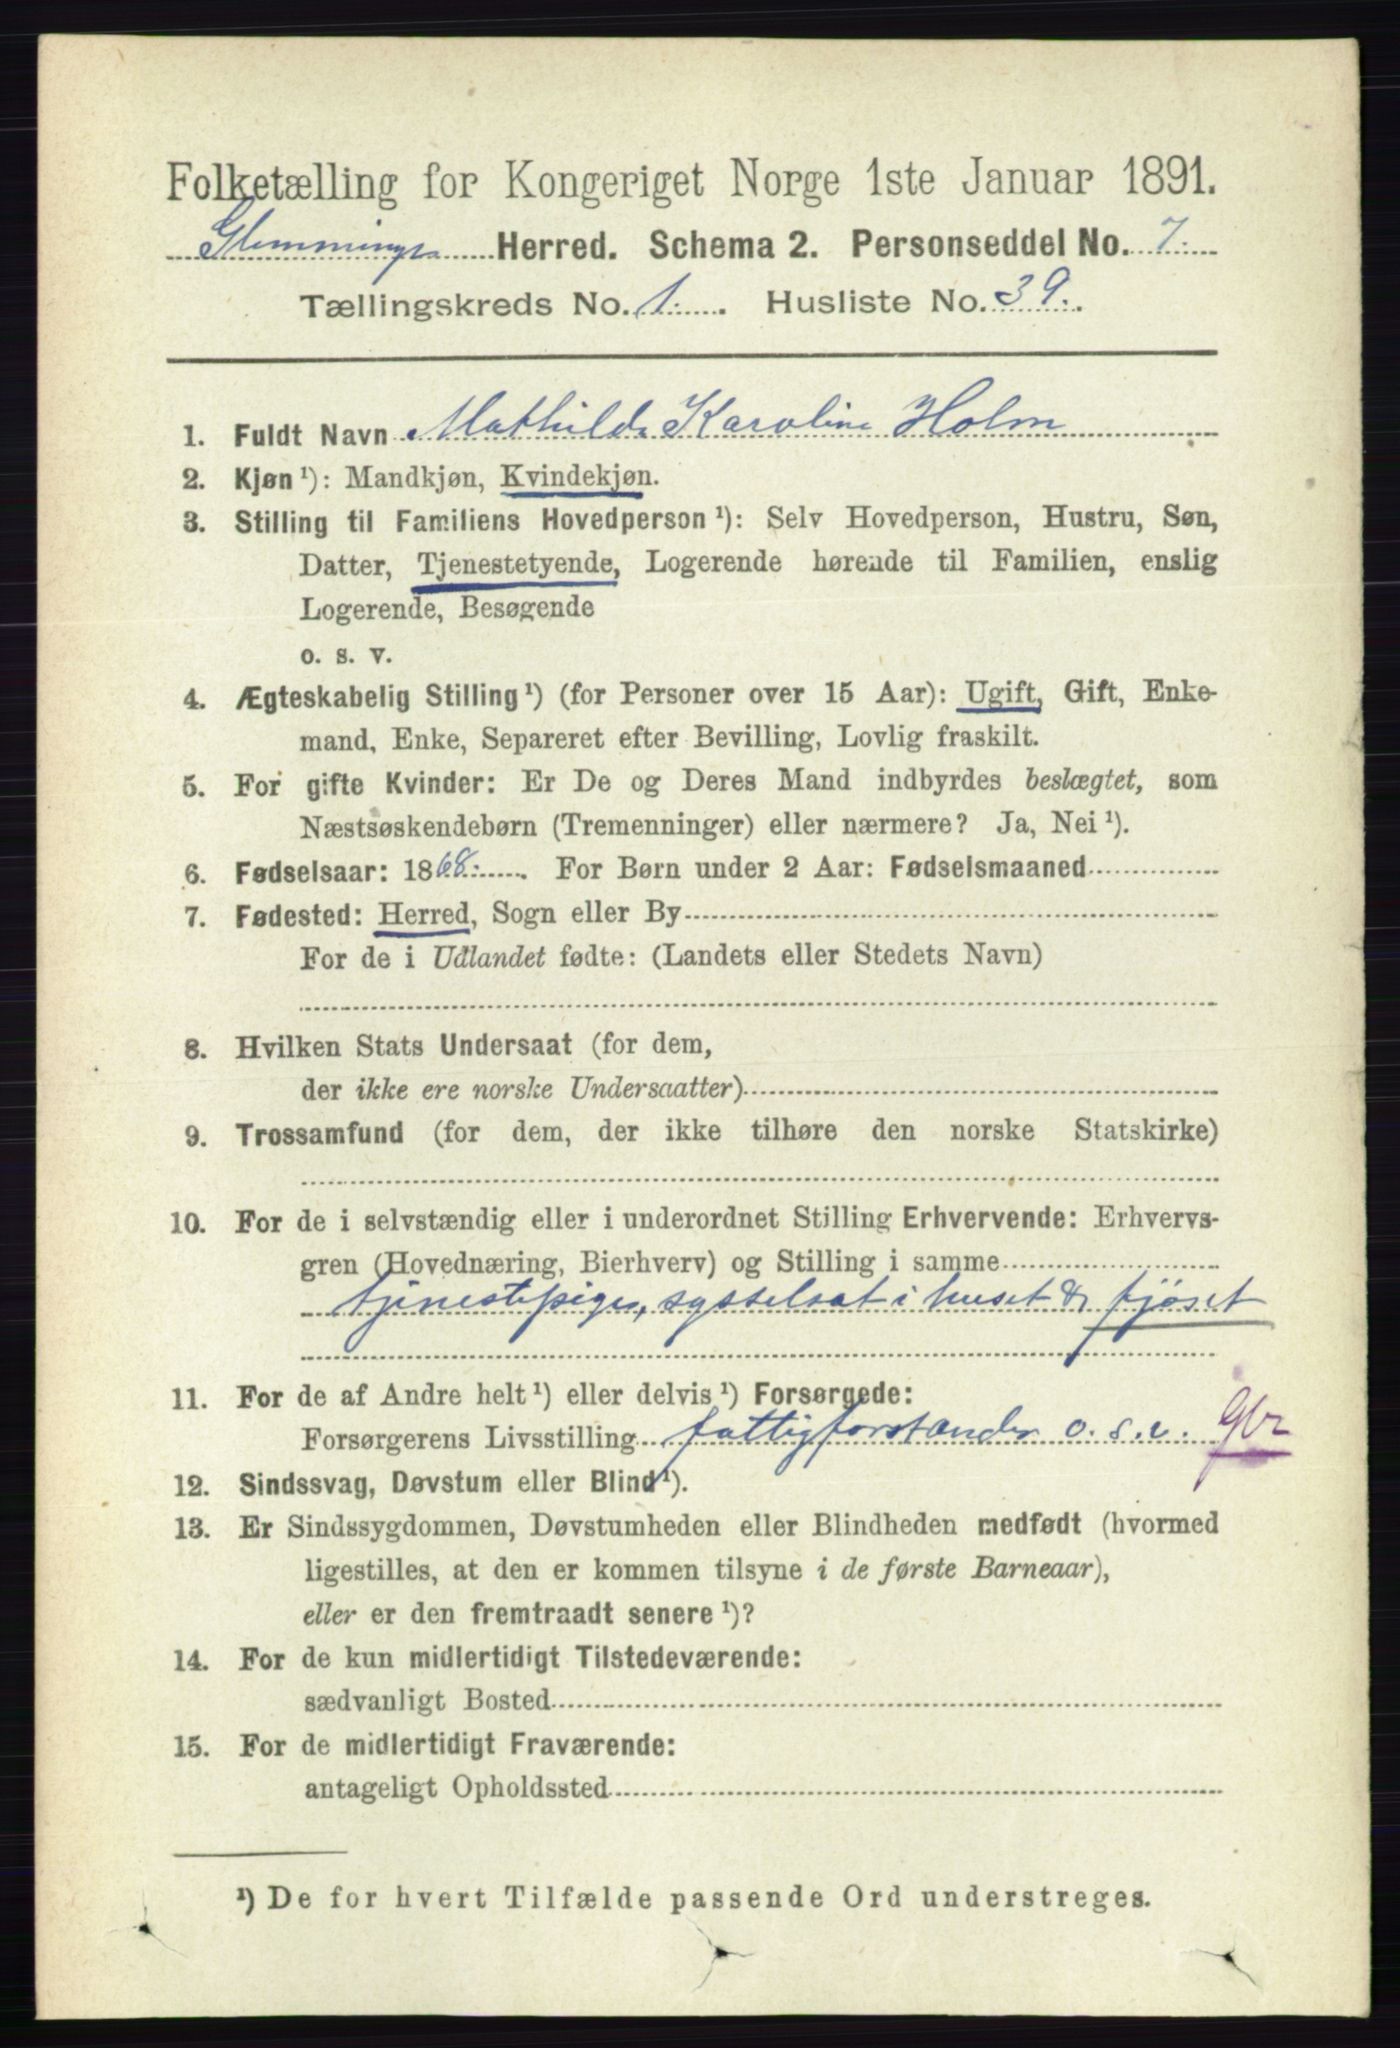 Folketælling for Kongeriget Norge 1ste Januar 1891.
Glemminge Herred. Schema 2. Personseddel No. 7.
Tællingskreds No. 1. Husliste No. 39.
1. Fuldt Navn Mathilde Karoline Holm
2. Kjøn ¹): Mandkjøn, Kvindekjøn.
3. Stilling til Familiens Hovedperson ¹): Selv Hovedperson, Hustru, Søn,
Datter, Tjenestetyende, Logerende hørende til Familien, enslig
Logerende, Besøgende
o. s. v.
4. Ægteskabelig Stilling ¹) (for Personer over 15 Aar): Ugift, Gift, Enke-
mand, Enke, Separeret efter Bevilling, Lovlig fraskilt.
5. For gifte Kvinder: Er De og Deres Mand indbyrdes beslægtet, som
Næstsøskendebørn (Tremenninger) eller nærmere? Ja, Nei ¹).
6. Fødselsaar: 1868. For Børn under 2 Aar: Fødselsmaaned
7. Fødested: Herred, Sogn eller By
For de i Udlandet fødte: (Landets eller Stedets Navn)
8. Hvilken Stats Undersaat (for dem,
der ikke ere norske Undersaatter)
9. Trossamfund (for dem, der ikke tilhøre den norske Statskirke)
10. For de i selvstændig eller i underordnet Stilling Erhvervende: Erhvervs-
gren (Hovednæring, Bierhverv) og Stilling i samme
tjenestepige, sysselsat i huset & fjöset
11. For de af Andre helt ¹) eller delvis ¹) Forsørgede:
Forsørgerens Livsstilling fattigforstander o. s. v.
12. Sindssvag, Døvstum eller Blind ¹).
13. Er Sindssygdommen, Døvstumheden eller Blindheden medfødt (hvormed
ligestilles, at den er kommen tilsyne i de første Barneaar),
eller er den fremtraadt senere ¹)?
14. For de kun midlertidigt Tilstedeværende:
sædvanligt Bosted
15. For de midlertidigt Fraværende:
antageligt Opholdssted
¹) De for hvert Tilfælde passende Ord understreges.